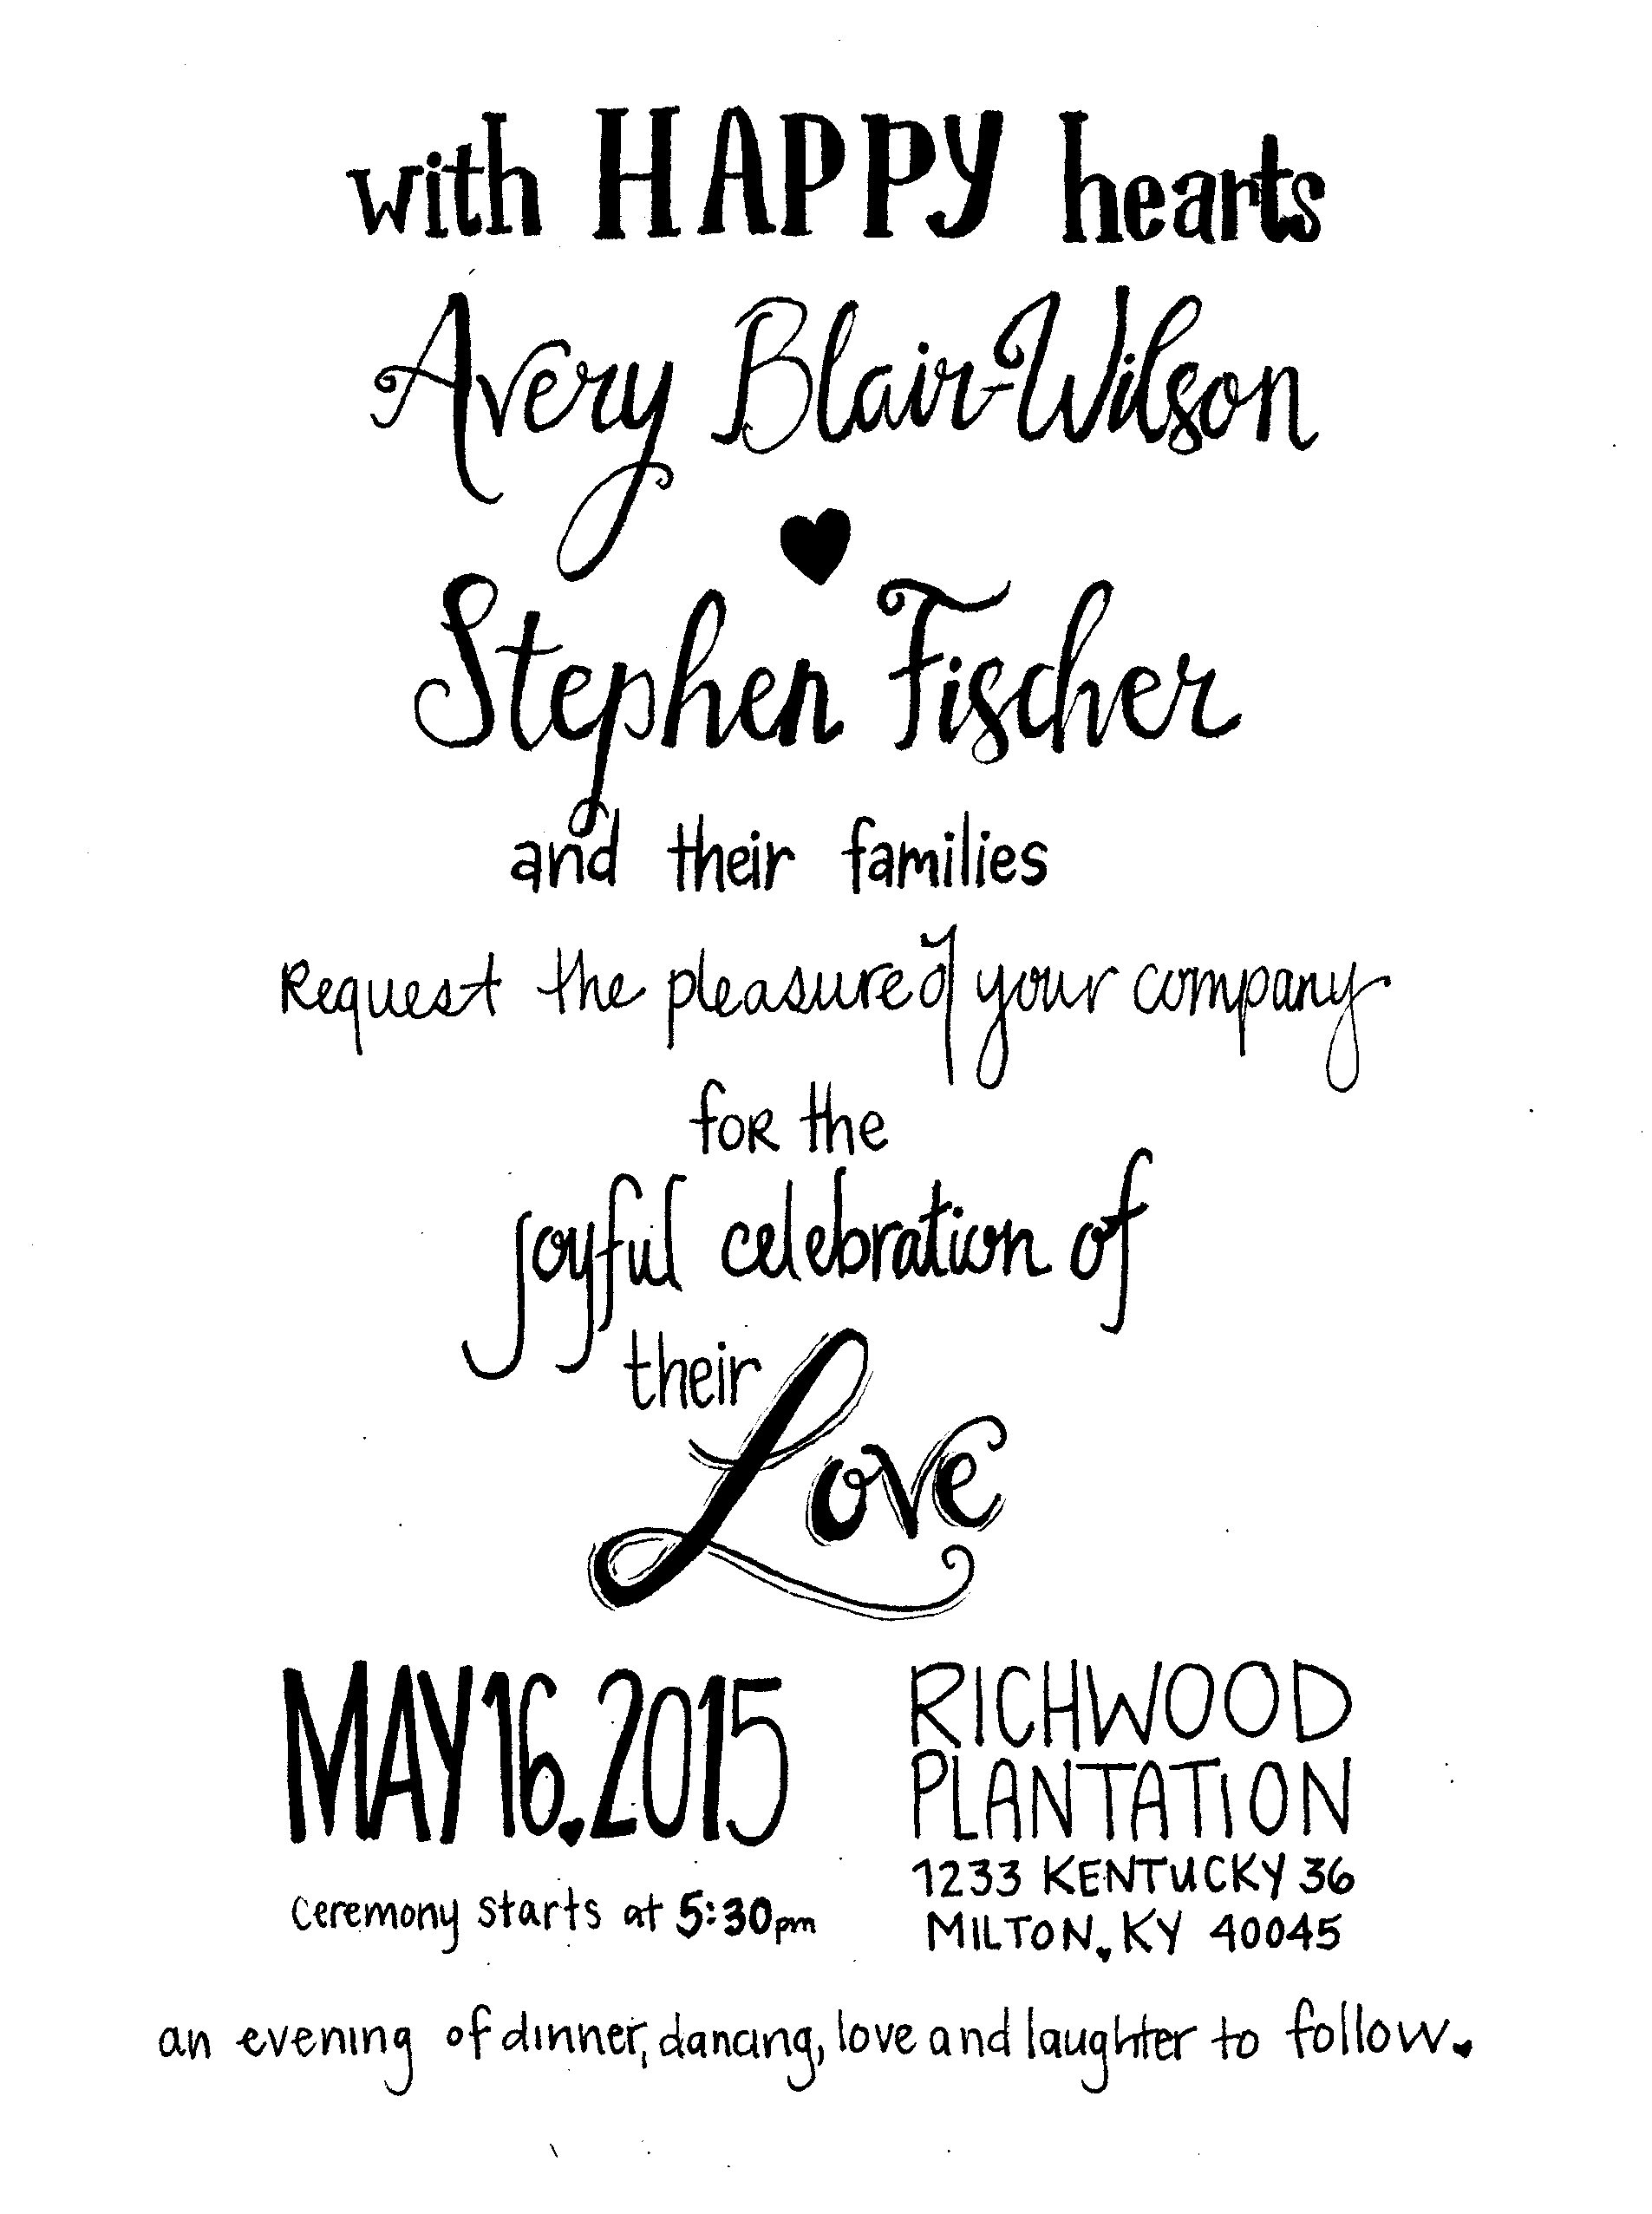 with HAPPY hearts
Avery Blair-Wilson
Stephen Fischer
and their families
Request the pleasure of your company
for the
joyful celebration of
their
Love
MAY 16.2015
ceremony starts at 5:30pm
RICHWOOD
PLANTATION
1233 KENTUCKY 36
MILTON, KY 40045
an evening of dinner, dancing, love and laughter to follow.